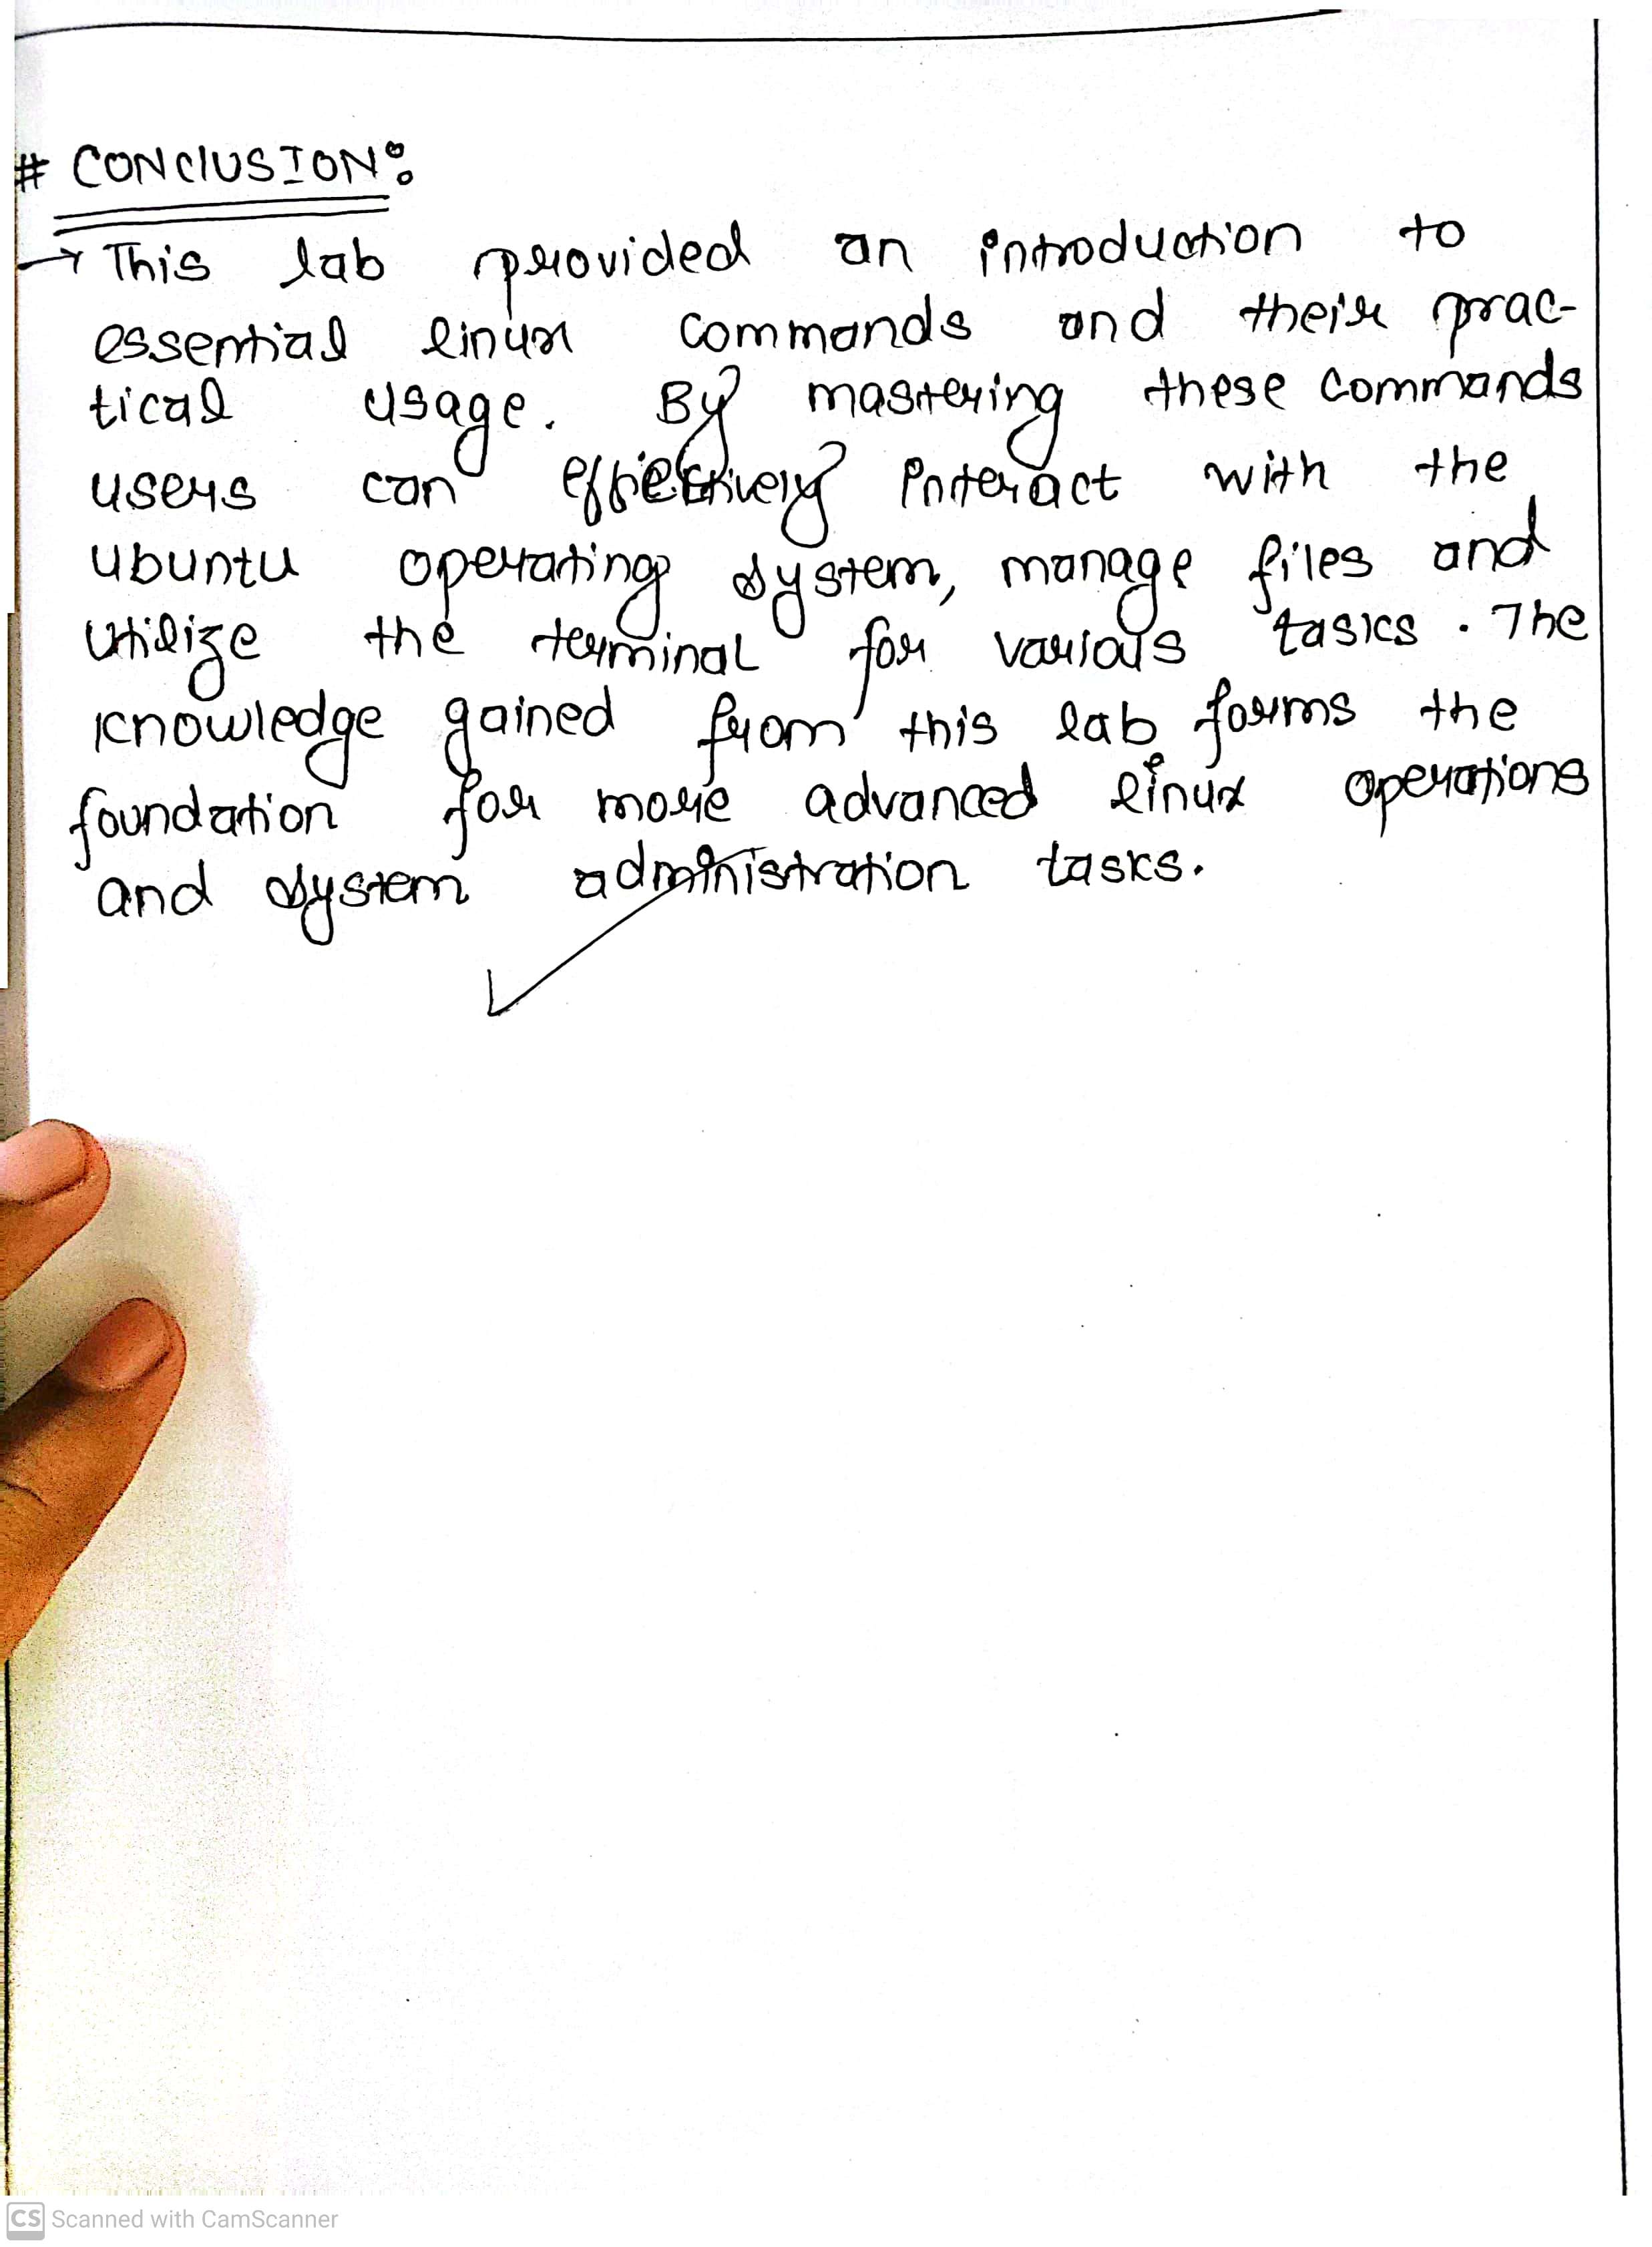 # CONCLUSION:
→ This lab provided an introduction to
essential linux commands and their prac-
tical usage. By mastering these commands
users can effectively interact with the
ubuntu operating system, manage files and
utilize the terminal for various tasks. The
knowledge gained from this lab forms the
foundation for more advanced linux operations
and system administration tasks.
CS Scanned with CamScanner